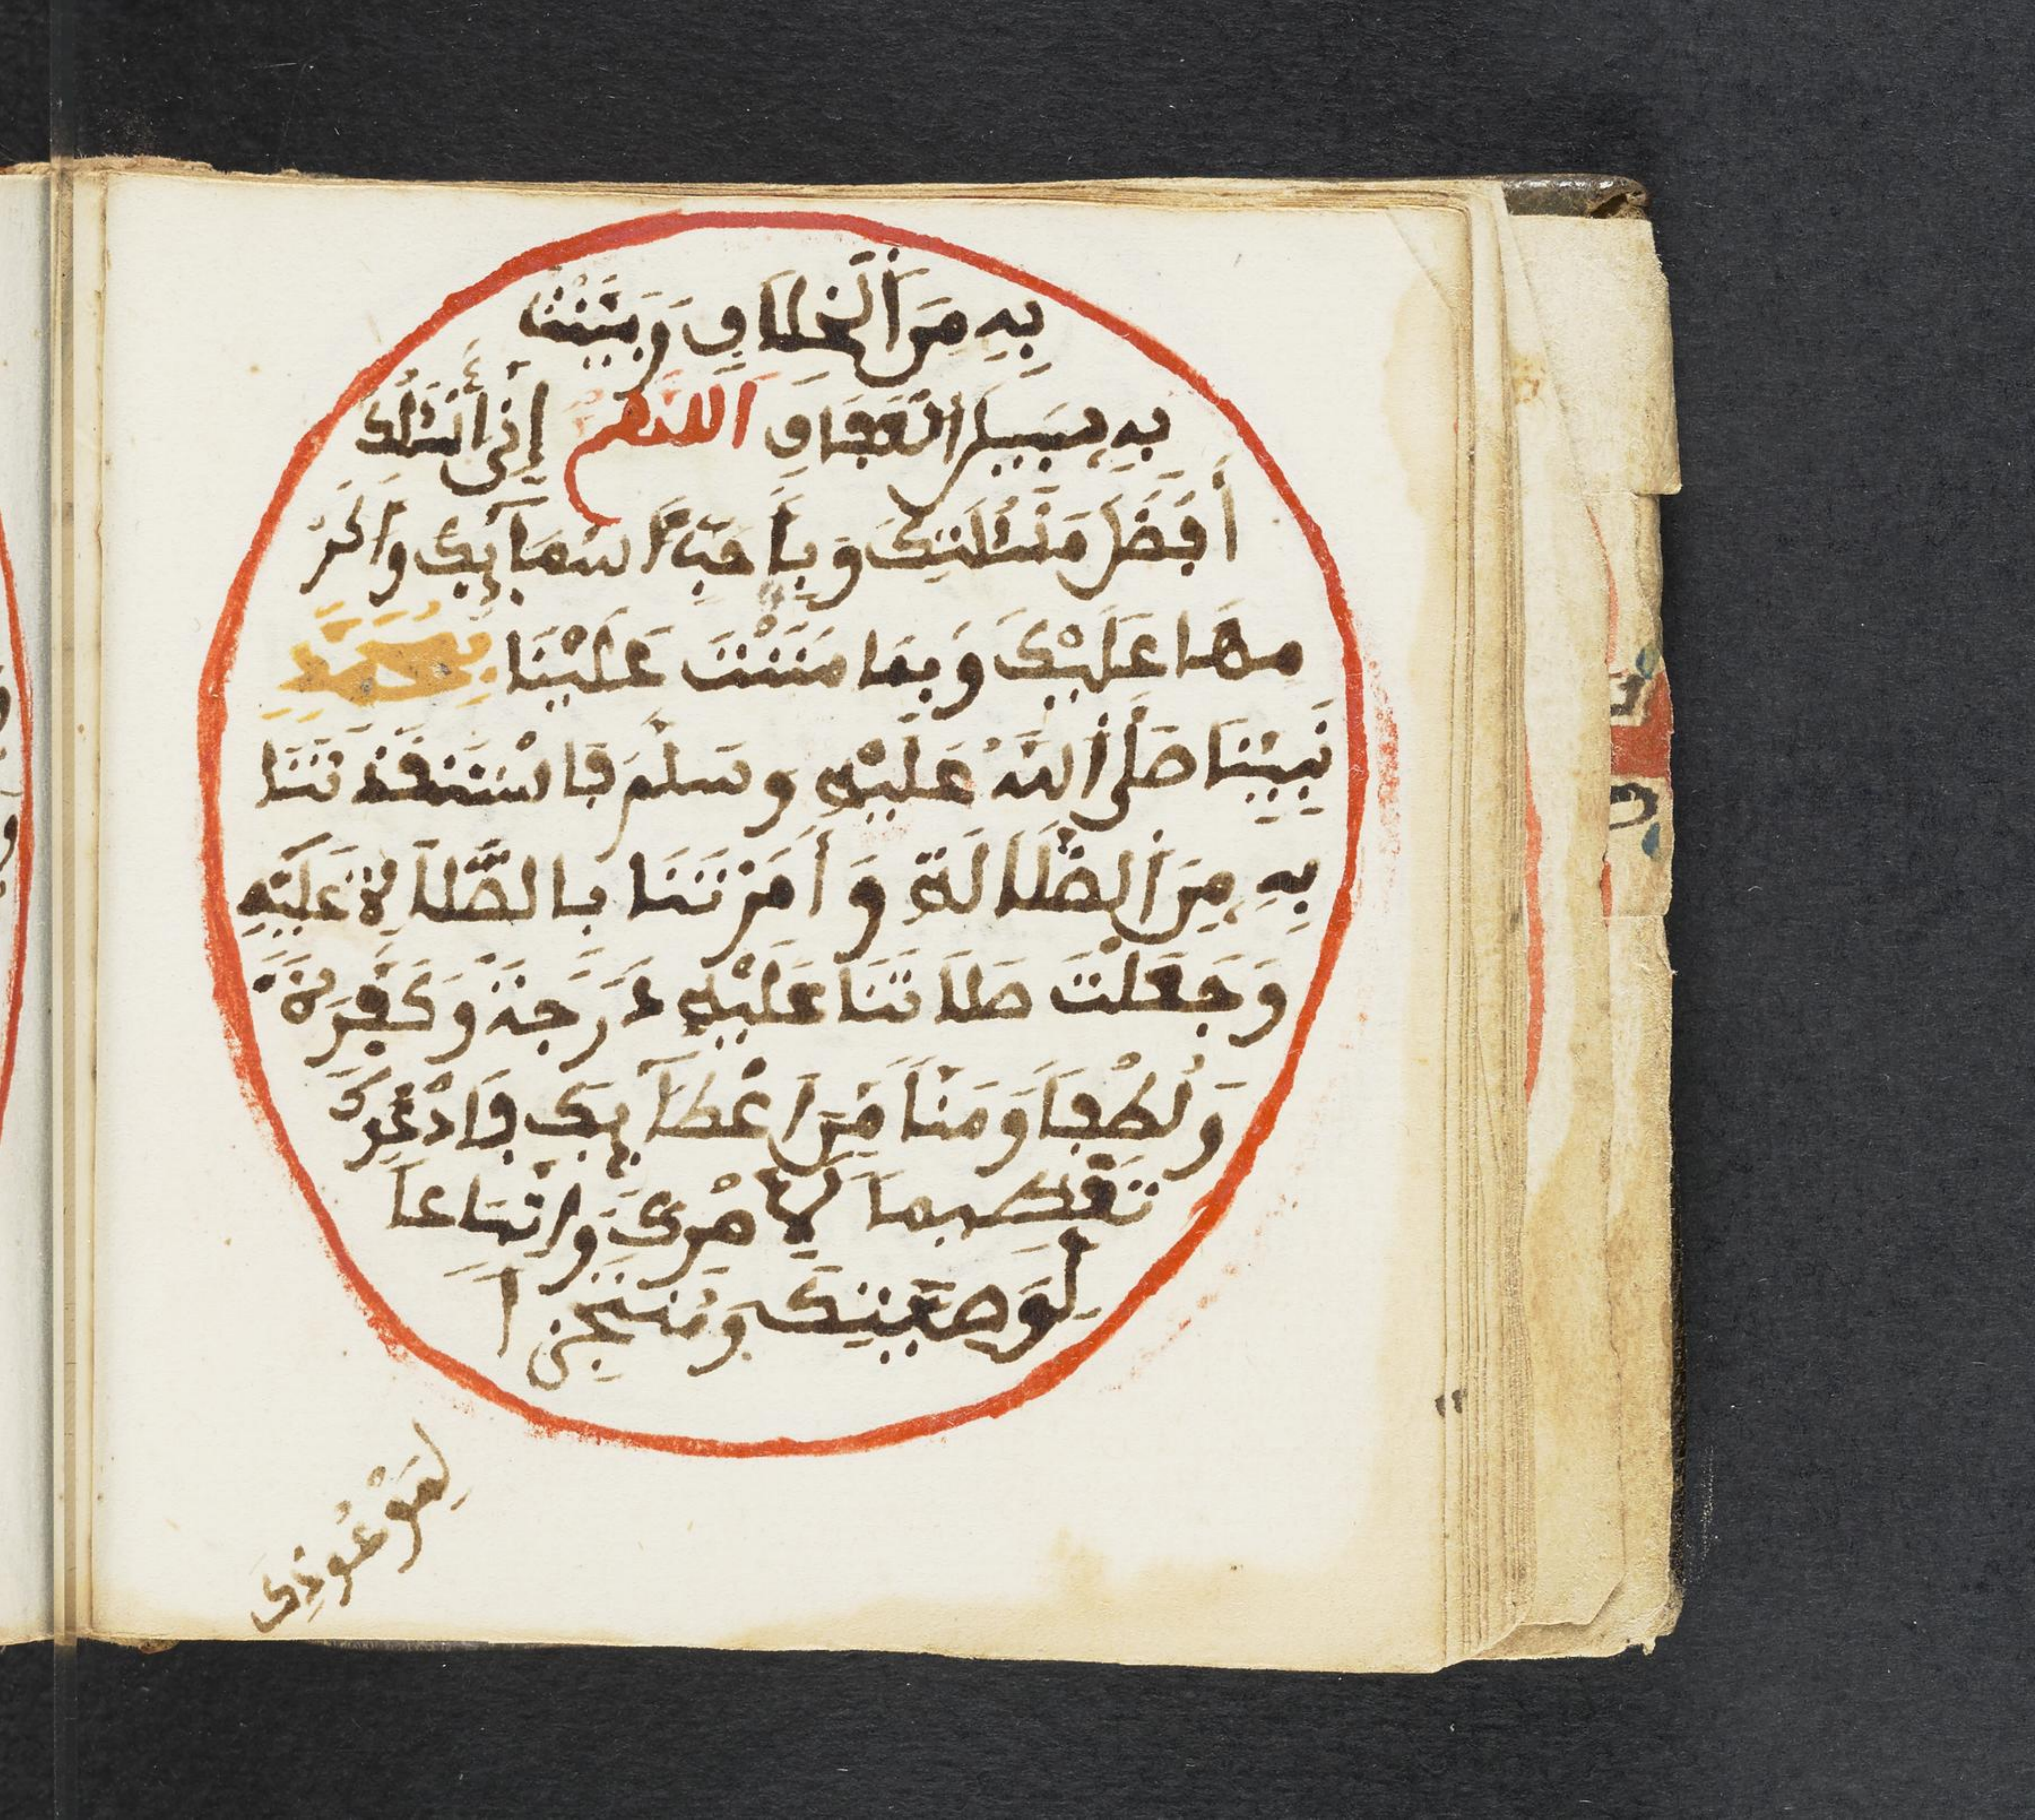 بِهِ مِنَ ٱلْخِلَافِ وَبَيَّنْتَ
بِهِ سَبِيلَ ٱلْعَفَافِ اللَّهُمَّ إِنِّي أَسْئَلُكَ
أَفْضَلَ مَسْئَلَتِكَ وَبِأَحَبِّ أَسْمَآئِكَ وَأَكْرَ
مِهَا عَلَيْكَ وَبِمَا مَنَنْتَ عَلَيْنَا بِمُحَمَّدٍ
نَبِيِّنَا صَلَّى ٱللَّهُ عَلَيْهِ وَسَلَّمَ فَاسْتَنْقَذْتَنَا
بِهِ مِنَ ٱلضَّلَالَةِ وَأَمَرْتَنَا بِالصَّلَاةِ عَلَيْهِ
وَجَعَلْتَ صَلَاتَنَا عَلَيْهِ دَرَجَةً وَكَفَّرَةً
وَلُطْفاً وَمَنّاً مِّنْ اعْطَآئِكَ فَادْعُوكَ
تَعْظِيماً لِّأَمْرِكَ وَاتِّبَاعاً
لِّوَصِيَّتِكَ وَمُنْتَجِزاً
لِمَوْعُودِكَ